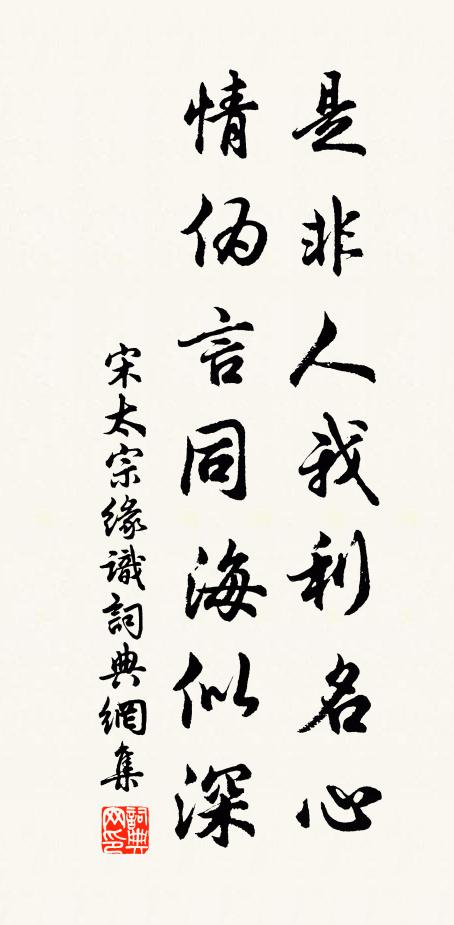 是非人我利名心
情伪言同海似深
宋太宗缘識詞典網集
詞典网印